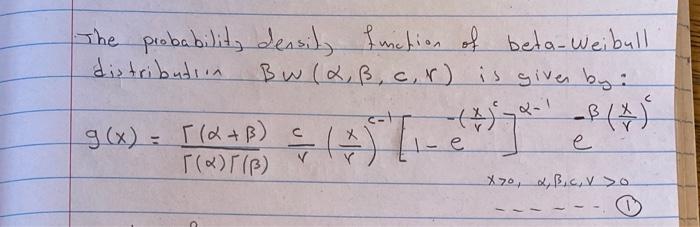 The probability density function of beta-Weibull
distribution BW(α, β, c, γ) is given by:
g(x) = Γ(α+β)/Γ(α)Γ(β) c/γ (x/γ)^(c-1) [1 - e^(-(x/γ)^c)]^(α-1) e^(-β(x/γ)^c)
x>0, α, β, c, γ >0
------ ①